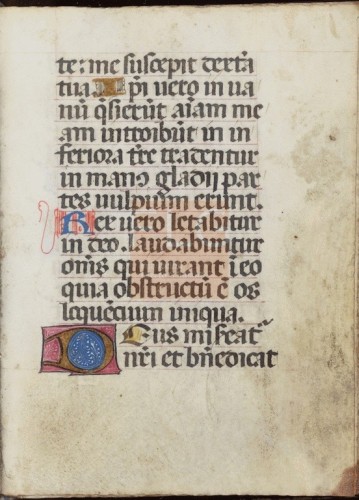 te: me suscepit dext̃a
tua Ip̃i uero in ua
nũ q̃sierũt aĩam me
am introibũt in in
feriora t̃re tradentur
in manꝰ gladii par
tes uulpium erunt.
Rex uero letabitur
in deo. laudabuntur
om̃s qui iurant ĩ eo
quia obstructũ ẽ os
loquencium iniqua.
Deus misereat᷑
nr̃i et bñedicat